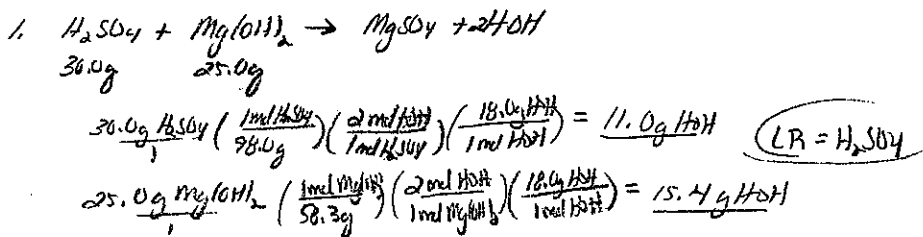 1. H₂SO₄ + Mg(OH)₂ → MgSO₄ + 2HOH
30.0g 25.0g
30.0g H₂SO₄/1 (1mol H₂SO₄/98.0g)(2mol HOH/1mol H₂SO₄)(18.0g HOH/1mol HOH) = 11.0g HOH
LR = H₂SO₄
25.0g Mg(OH)₂/1 (1mol Mg(OH)₂/58.3g)(2mol HOH/1mol Mg(OH)₂)(18.0g HOH/1mol HOH) = 15.4g HOH